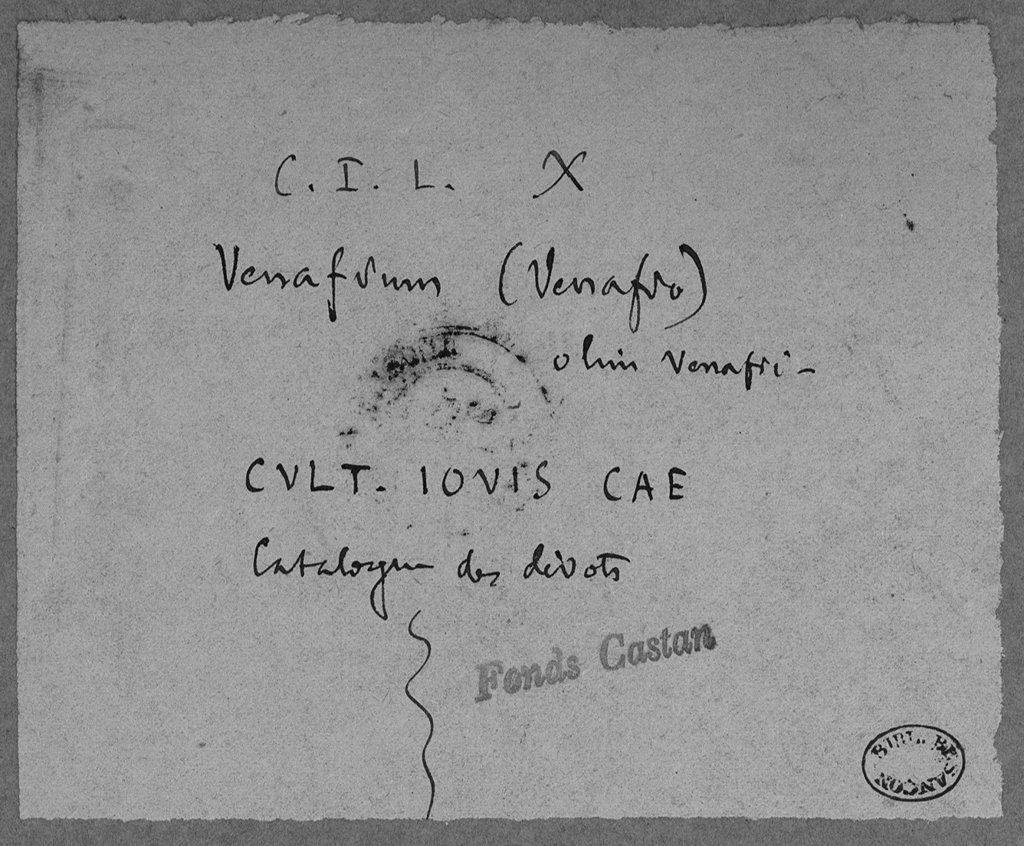 C. I. L. X
Venafrum (Venafro)
olim Venafri -
CVLT. IOVIS CAE
Catalogue des dévots
Fonds Castan
BIBL. BESANÇON